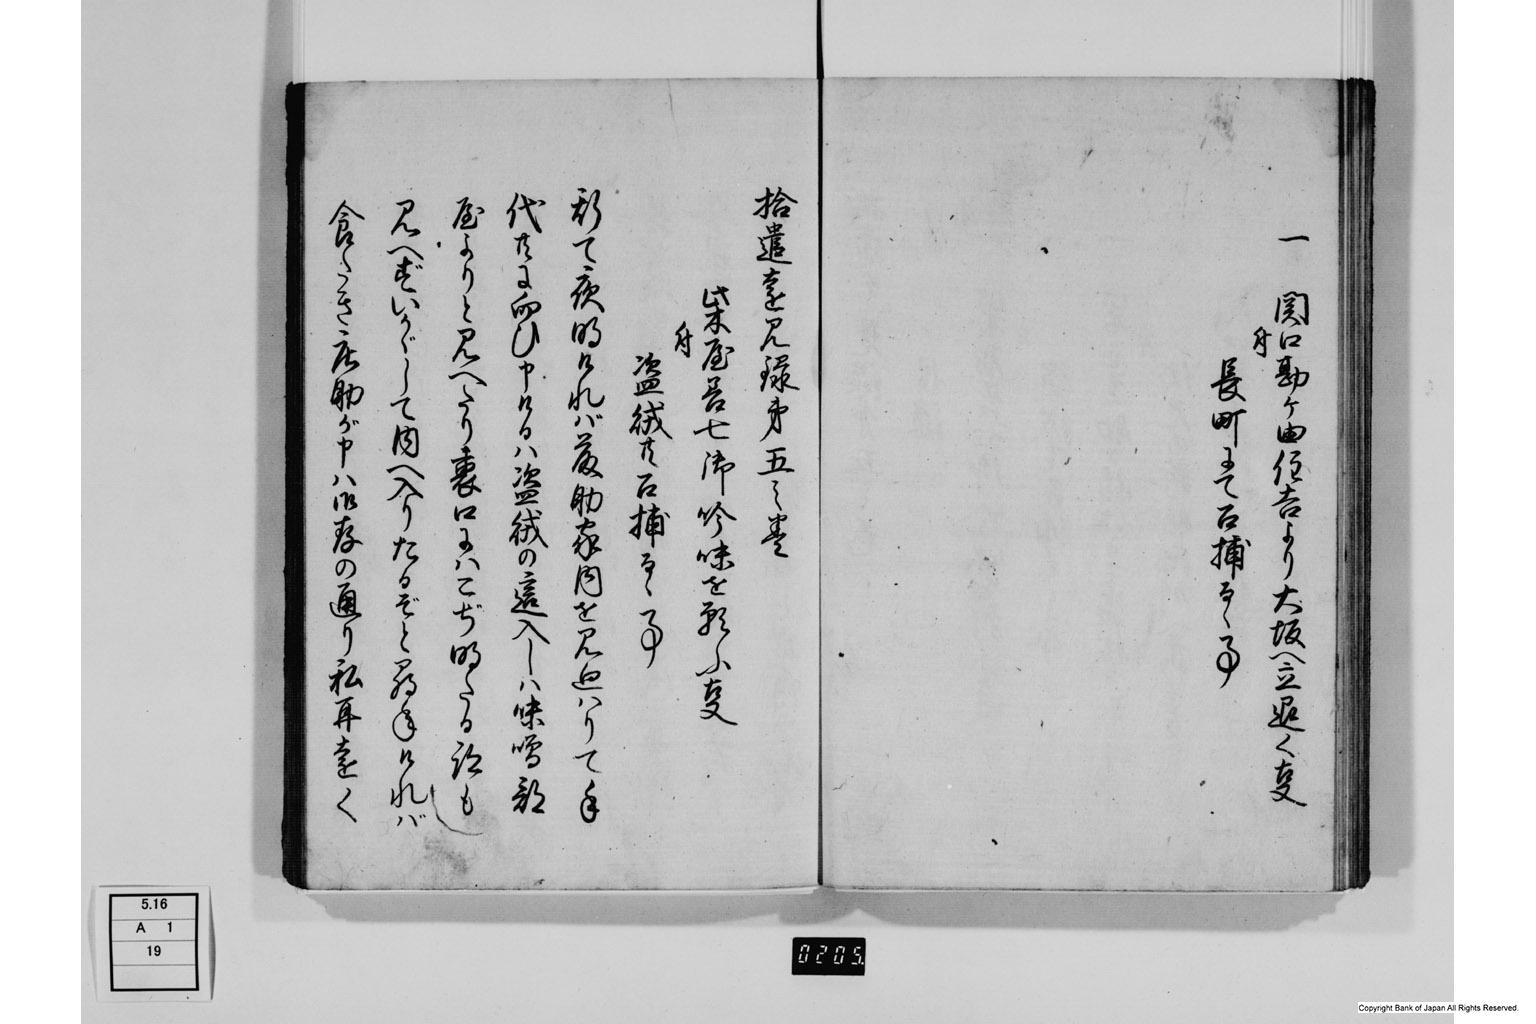 一 関口勘ヶ由住吉より大坂へ立退く事
并
長町にて召捕るゝ事
拾遺遠見録第五之巻
柴屋善七御吟味を願ふ事
并
盗賊共召捕るゝ事
斯て夜明けれバ藤助家内を見廻ハりて手
代共に向ひ申けるハ盗賊の這入しハ味噌部
屋よりと見へたり裏口にハこぢ明たる跡も
見へずいかゞして内へ入りたるぞと尋ければ
食たき庄助が申ハ御存の通り私耳遠く
5.16
A 1
19
0205
Copyright Bank of Japan All Rights Reserved.